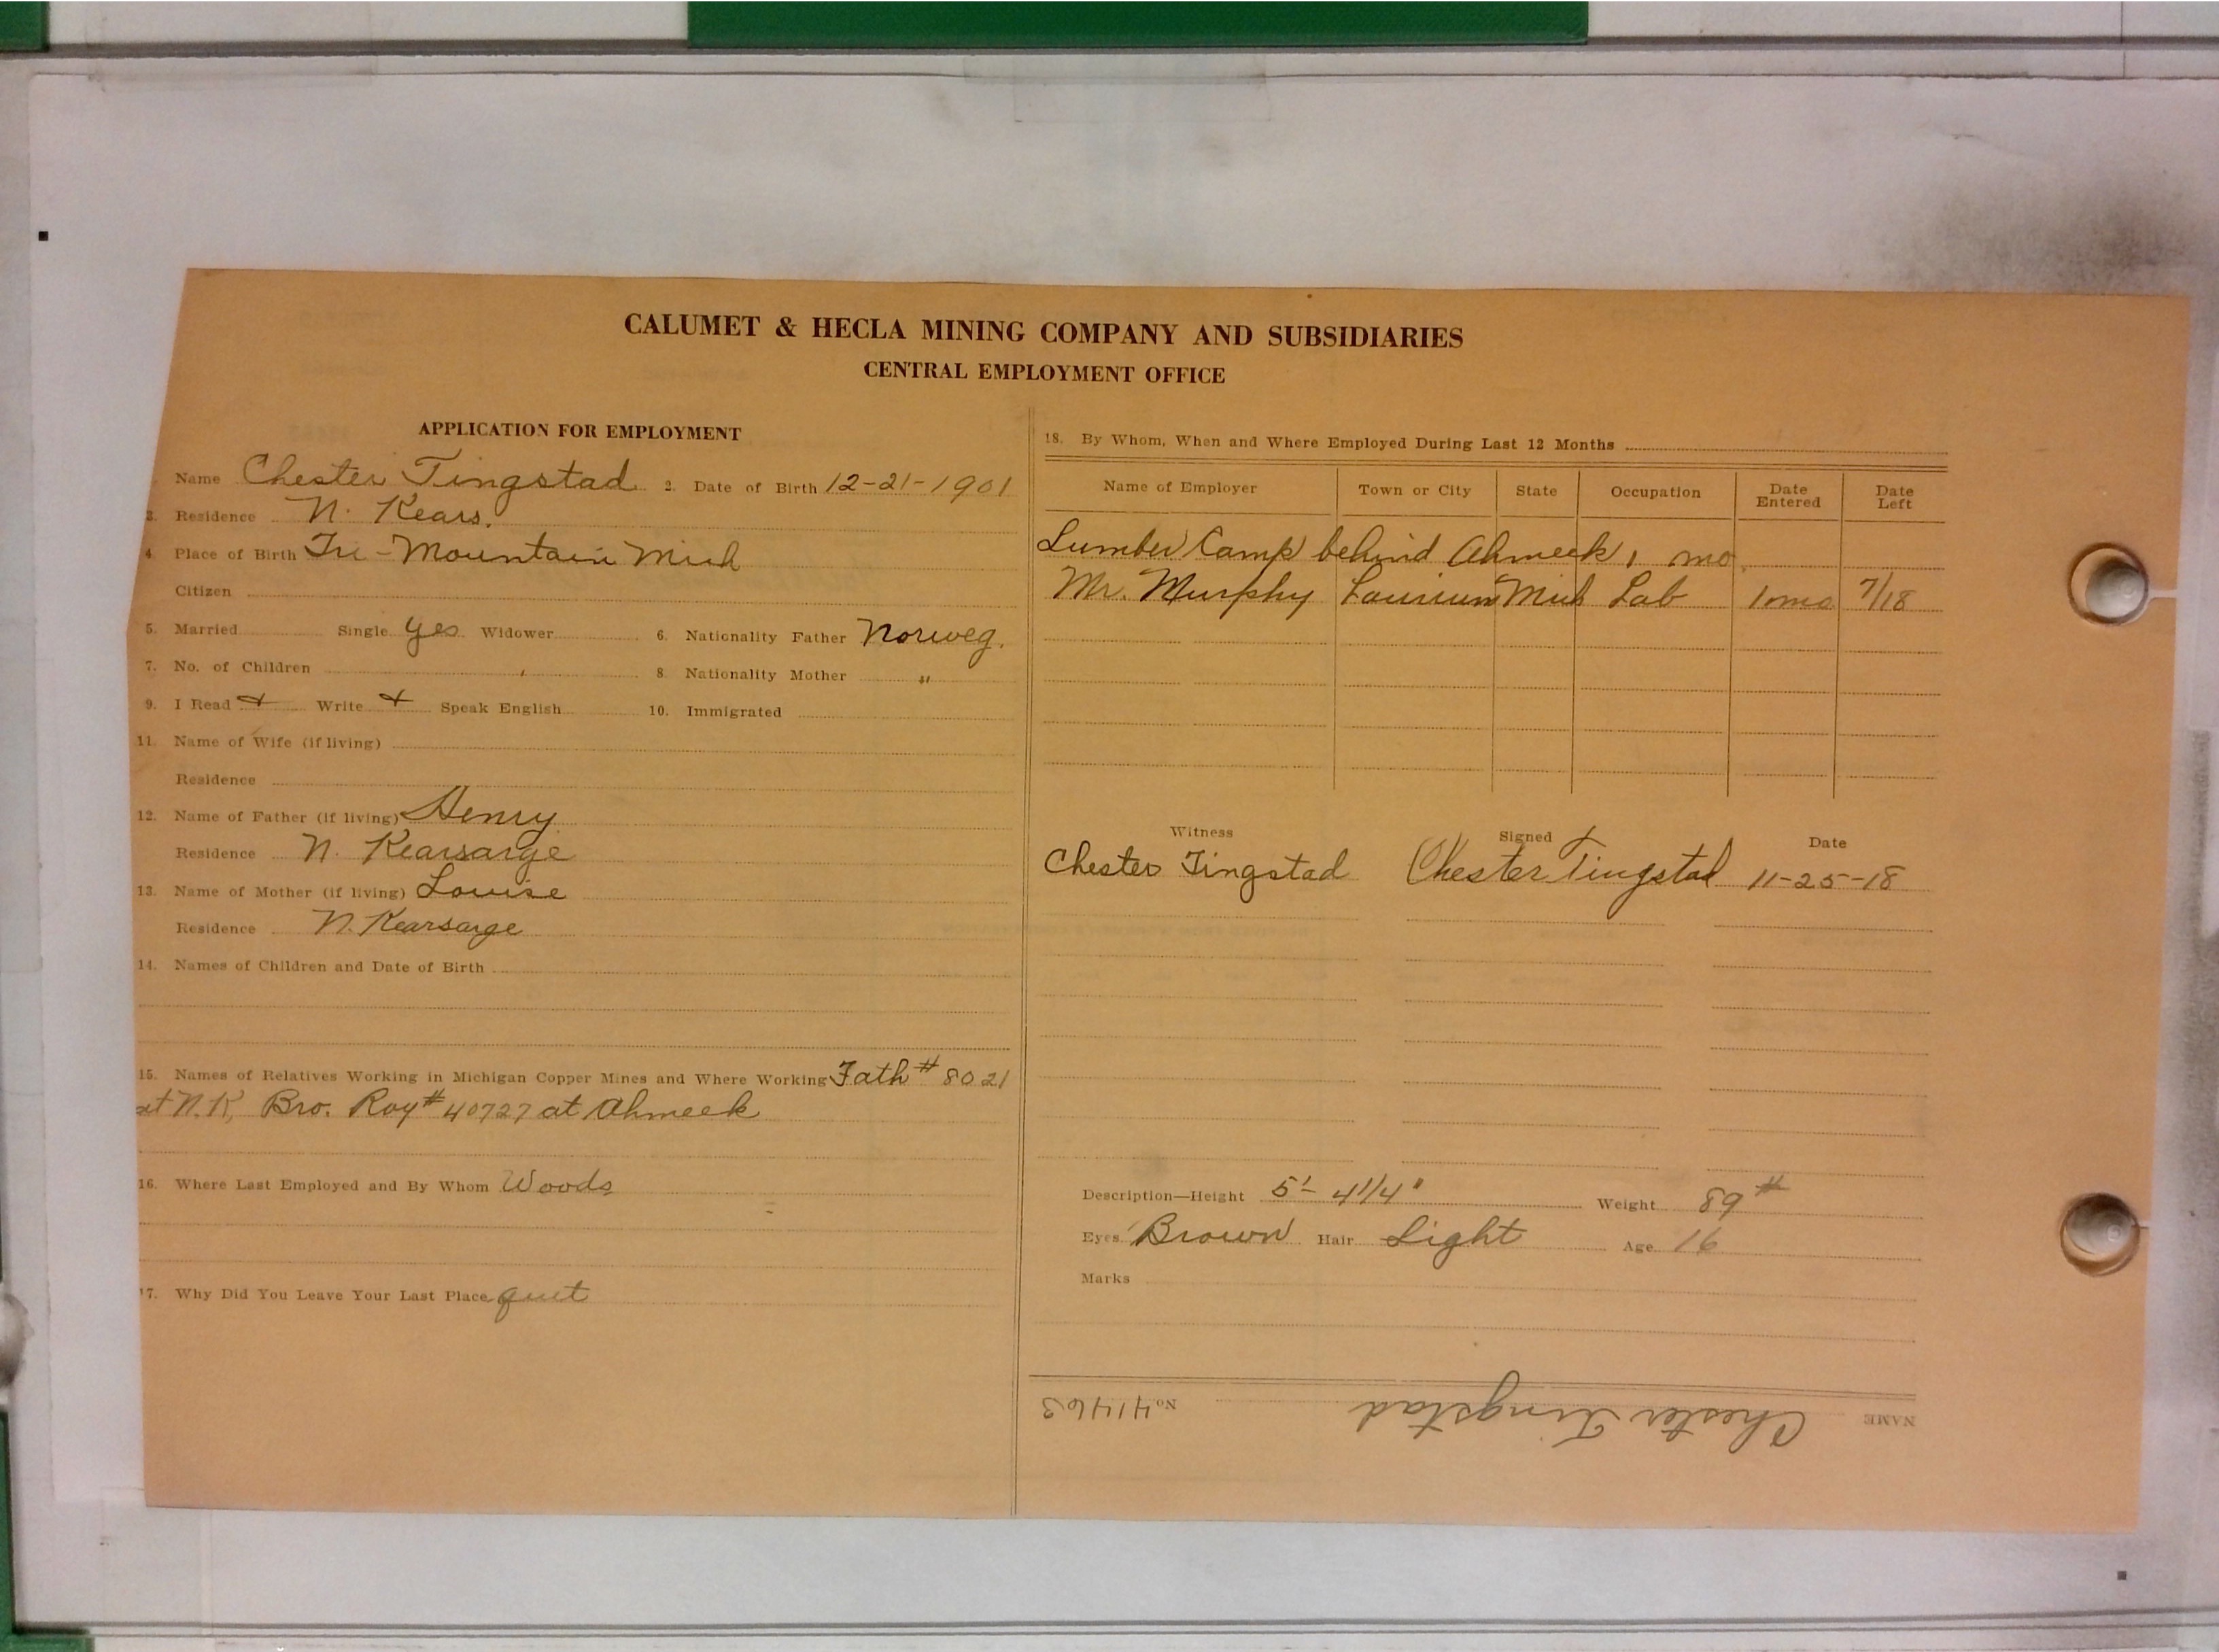 CALUMET & HECLA MINING COMPANY AND SUBSIDIARIES
CENTRAL EMPLOYMENT OFFICE
APPLICATION FOR EMPLOYMENT
Name Chester Tingstad 2. Date of Birth 12-21-1901
3. Residence N. Kears.
4. Place of Birth Tri-Mountain Mich
Citizen
5. Married Single yes Widower 6. Nationality Father Norweg.
7. No. of Children 8. Nationality Mother "
9. I Read + Write + Speak English 10. Immigrated
11. Name of Wife (if living)
Residence
12. Name of Father (if living) Henry
Residence N. Kearsarge
13. Name of Mother (if living) Louise
Residence N. Kearsarge
14. Names of Children and Date of Birth
15. Names of Relatives Working in Michigan Copper Mines and Where Working Fath # 8021
at N.K, Bro. Roy # 40727 at Ahmeek
16. Where Last Employed and By Whom Woods
17. Why Did You Leave Your Last Place quit
18. By Whom, When and Where Employed During Last 12 Months
Name of Employer Town or City State Occupation Date Entered Date Left
Lumber Camp behind Ahmeek 1 mo.
Mr. Murphy Laurium Mich Lab 1mo 7/18
Witness Signed Date
Chester Tingstad Chester Tingstad 11-25-18
Description—Height 5'- 4 1/4" Weight 89 #
Eyes Brown Hair Light Age 16
Marks
NAME Chester Tingstad No. 41463